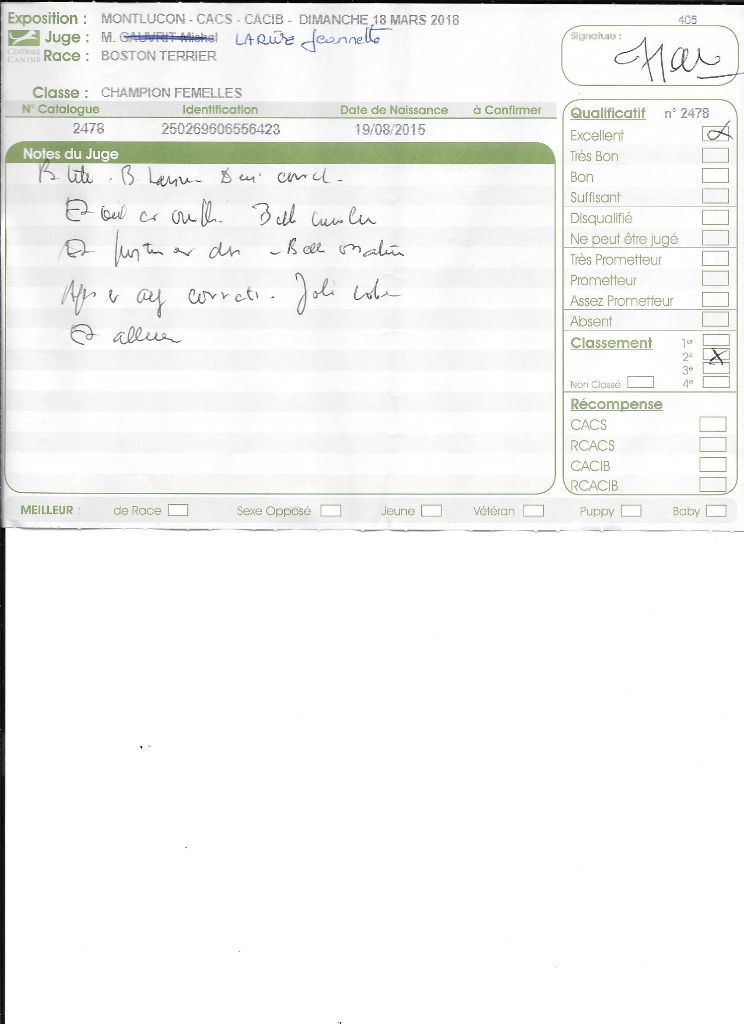 Exposition : MONTLUCON - CACS - CACIB - DIMANCHE 18 MARS 2018
405
CENTRALE CANINE
Juge : M. GAUVRIT Michel LARIVE Jeannette
Race : BOSTON TERRIER
Signature :
Classe : CHAMPION FEMELLES
N° Catalogue Identification Date de Naissance à Confirmer
2478 250269606556423 19/08/2015
Notes du Juge
B. tête. B. correct.
oeil et Belle
et Belle
et correct. Jolie robe
allure
Qualificatif n° 2478
Excellent
Très Bon
Bon
Suffisant
Disqualifié
Ne peut être jugé
Très Prometteur
Prometteur
Assez Prometteur
Absent
Classement 1er
2e X
3e
Non Classé 4e
Récompense
CACS
RCACS
CACIB
RCACIB
MEILLEUR : de Race Sexe Opposé Jeune Vétéran Puppy Baby